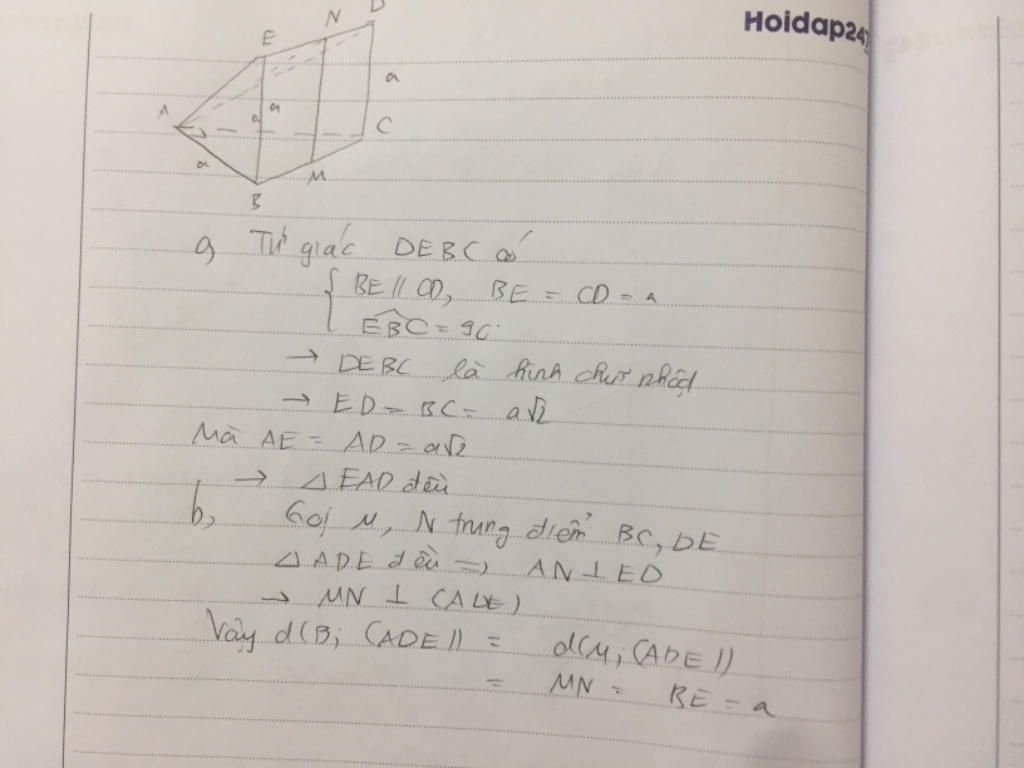 Hoidap247
E N D
a
A a a C
a
M
B
a, Tứ giác DEBC có
{ BE // CD, BE = CD = a
EBC = 90
→ DEBC là hình chữ nhật
→ ED = BC = a√2
Mà AE = AD = a√2
→ △ EAD đều
b, Gọi M, N trung điểm BC, DE
△ ADE đều => AN ⊥ ED
→ MN ⊥ (ADE)
Vậy d(B; (ADE)) = d(M; (ADE))
= MN = BE = a